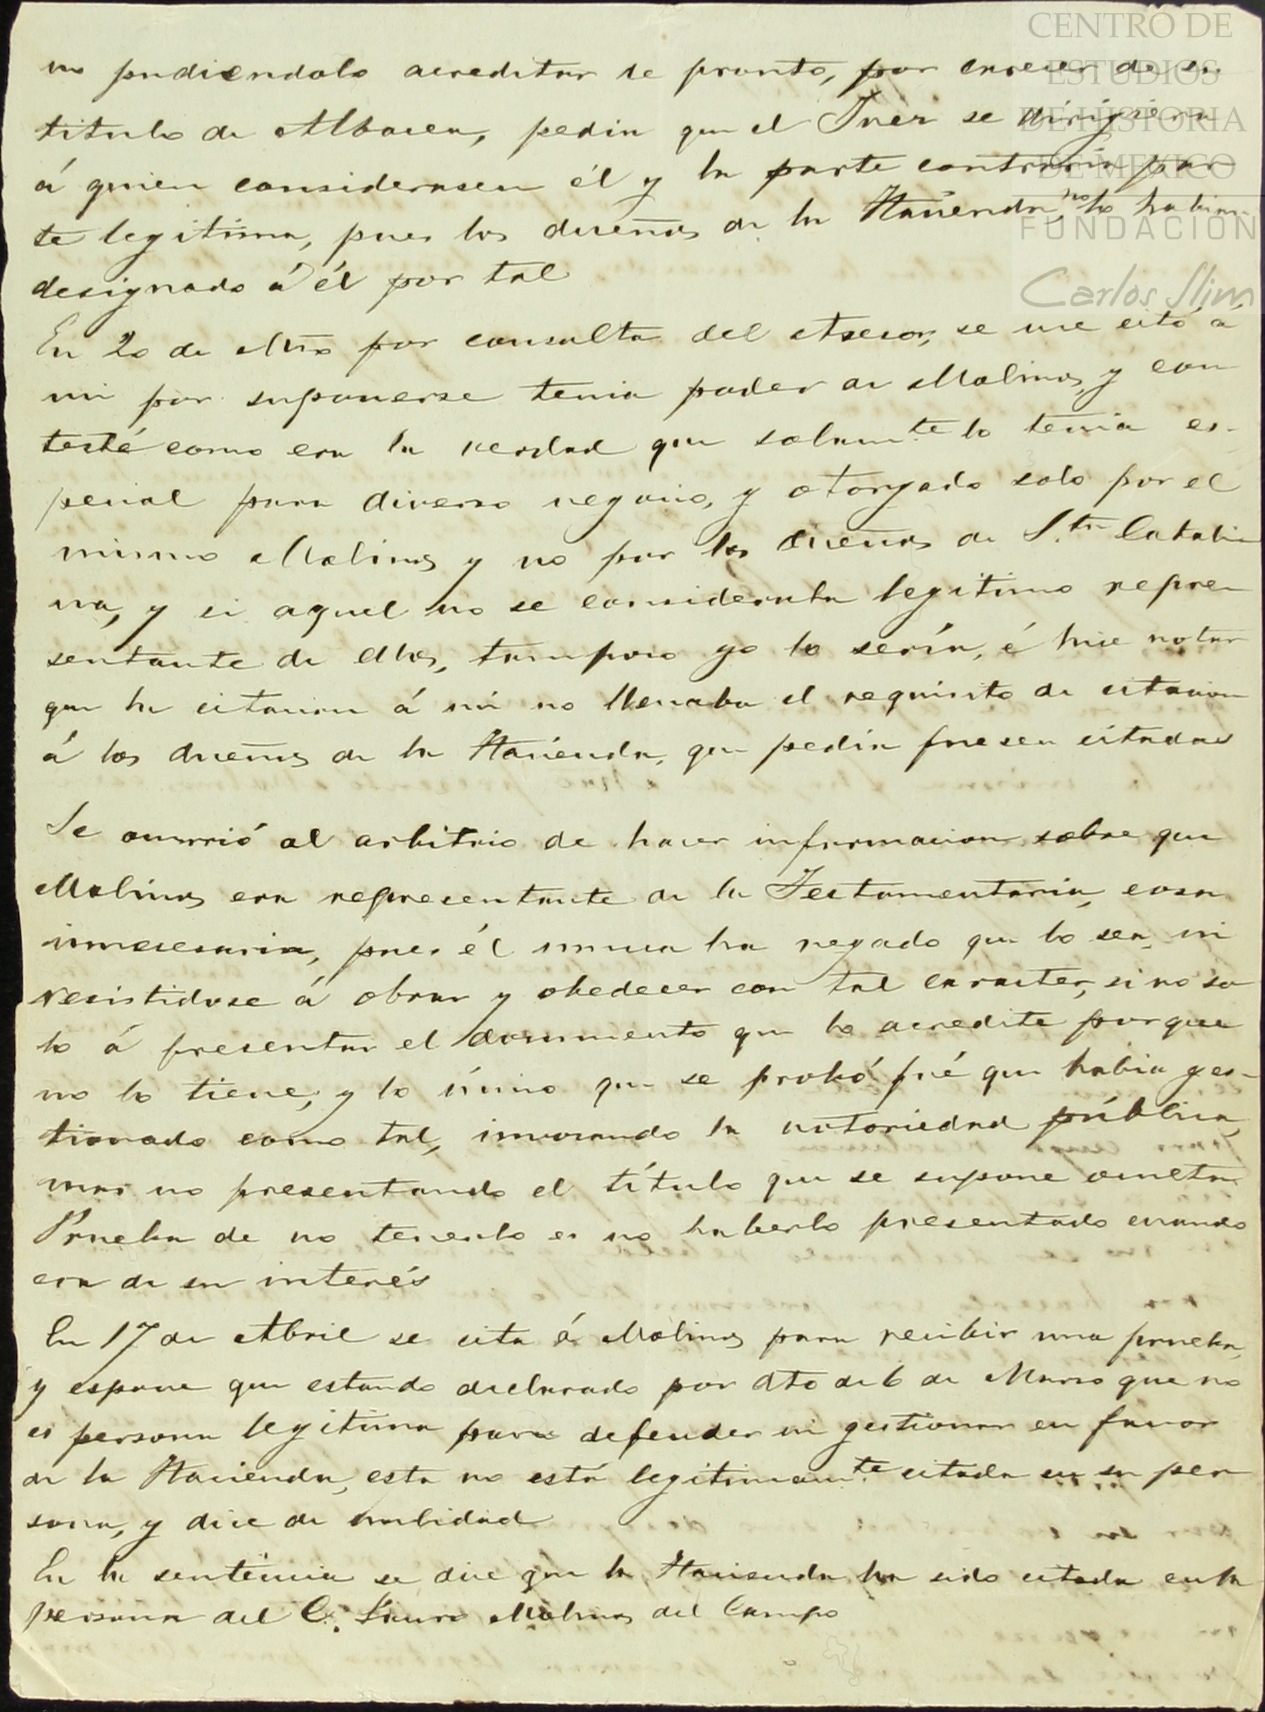 CENTRO DE
ESTUDIOS
DE HISTORIA
DE MEXICO
FUNDACIÓN
Carlos Slim
no pudiendolo acreditar de pronto, por carecer de su
titulo de Albacea, pedia que el Juez se dirigiera
á quien considerasen él y la parte contraria par
te legitima, pues los dueños de la Hacienda no lo habian
designado á él por tal
En 20 de Mzo por consulta del Asesor, se me citó á
mi por suponerse tenia poder de Molinos, y con
testé como era la verdad que solamte lo tenia es-
pecial para diverso negocio, y otorgado solo por el
mismo Molinos y no por los dueños de Sta Catali
na, y si aquel no se consideraba legitimo repre
sentante de ellos, tampoco yo lo sería, é hice notar
que la citacion á mi no llenaba el requisito de citacion
á los dueños de la Hacienda, que pedia fuesen citados
Se ocurrió al arbitrio de hacer informacion sobre que
Molinos era representante de la Testamentaria, cosa
innecesaria, pues él nunca ha negado que lo sea, ni
resistidose á obrar y obedecer con tal caracter, si no so
lo á presentar el documento que lo acredite porque
no lo tiene, y lo único que se probó fué que habia ges-
tionado como tal, invocando la notoriedad pública,
mas no presentando el título que se supone oculta
Prueba de no tenerlo es no haberlo presentado cuando
era de su interés
En 17 de Abril se cita á Molinos para recibir una prueba,
y espone que estando declarado por Ato de 6 de Marzo que no
es persona legitima para defender ni gestionar en favor
de la Hacienda, esta no está legitimamte citada en su per
sona, y dice de nulidad
En la sentencia se dice que la Hacienda ha sido citada en la
persona del C. Lauro Molinos del Campo